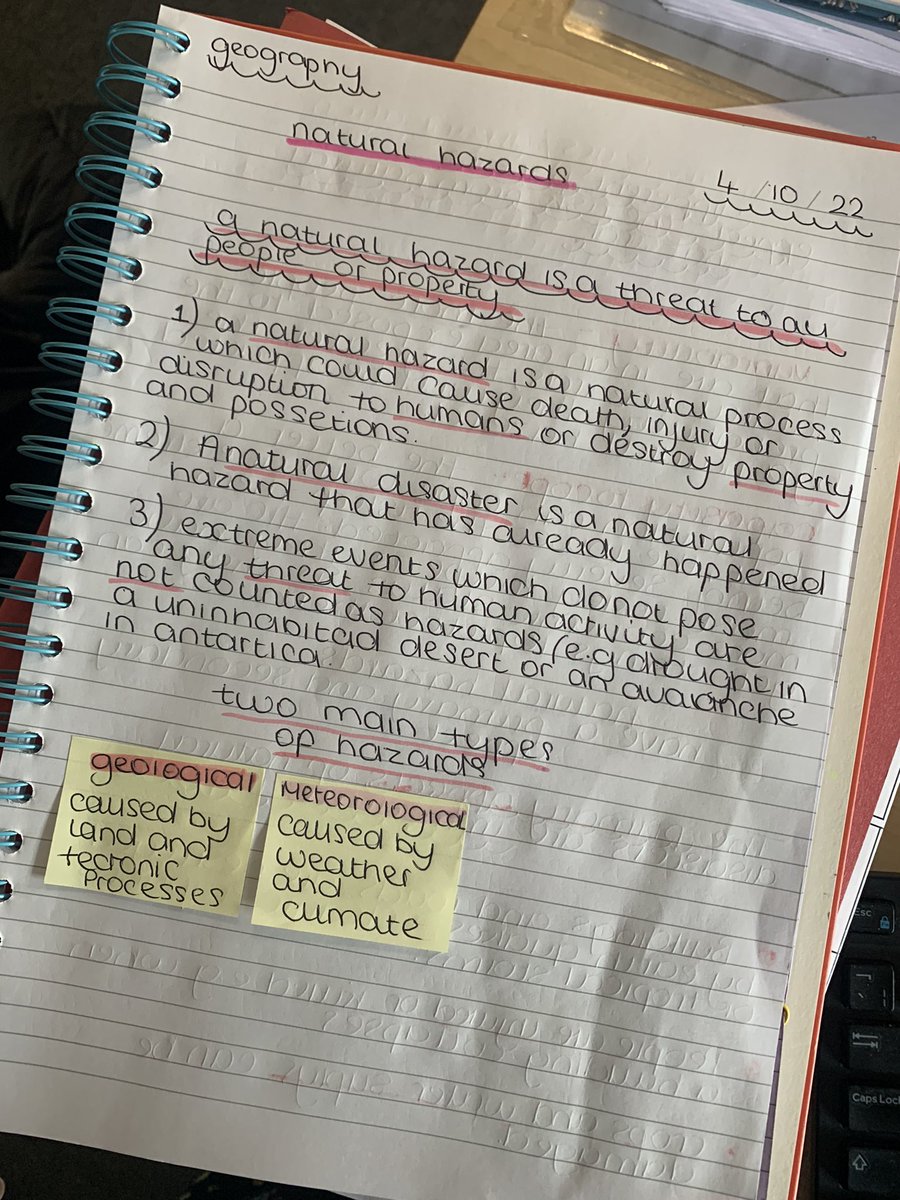 geography
natural hazards
4/10/22
a natural hazard is a threat to all
people or property
1) a natural hazard is a natural process
which could cause death, injury or
disruption to humans or destroy property
and possetions.
2) A natural disaster is a natural
hazard that has already happened
3) extreme events which do not pose
any threat to human activity are
not counted as hazards (e.g drought in
a uninhabitad desert or an avalanche
in antartica.
two main types
of hazards
geological
caused by
land and
tectonic
processes
Meteorological
caused by
weather
and
climate
Esc
Caps Lock